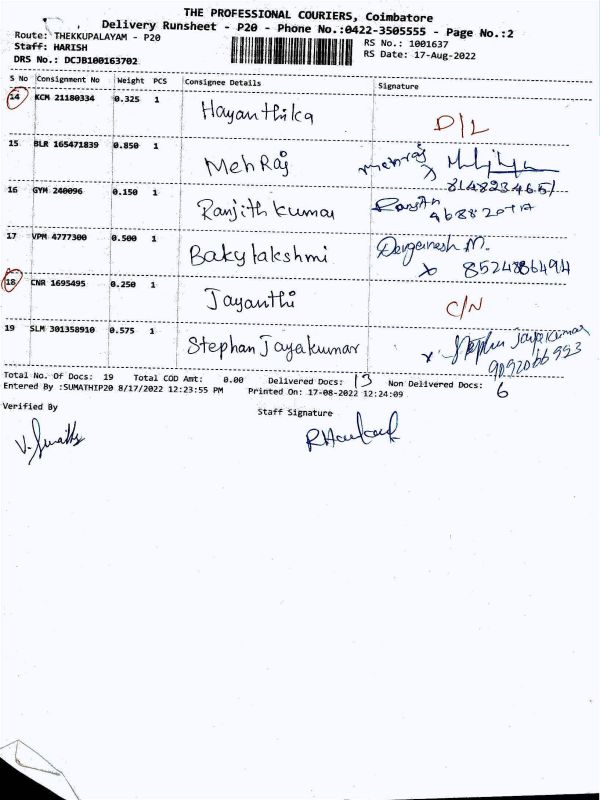 THE PROFESSIONAL COURIERS, Coimbatore
Delivery Runsheet - P20 - Phone No.:0422-3505555 - Page No.:2
Route: THEKKUPALAYAM - P20
RS No.: 1001637
Staff: HARISH
RS Date: 17-Aug-2022
DRS No.: DCJB100163702
S No Consignment No Weight PCS Consignee Details Signature
14 KCM 21180334 0.325 1 Hayanthika D/L
15 BLR 165471839 0.850 1 Meh Raj mehraj
8148234651
16 GYM 240096 0.150 1 Ranjith kumar
17 VPM 4777300 0.500 1 Bakylakshmi M.
8524886494
18 CNR 1695495 0.250 1 Jayanthi C/N
19 SLM 301358910 0.575 1 Stephan Jayakumar Stephen Jayakumar
9092066993
Total No. Of Docs: 19 Total COD Amt: 0.00 Delivered Docs: 13 Non Delivered Docs: 6
Entered By :SUMATHIP20 8/17/2022 12:23:55 PM Printed On: 17-08-2022 12:24:09
Verified By Staff Signature
V. Sumathy